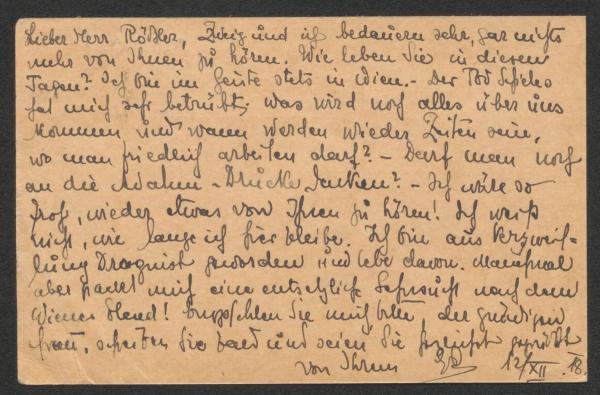 Lieber Herr Rößler, Zweig und ich bedauern sehr, gar nichts
mehr von Ihnen zu hören. Wie leben Sie in diesen
Tagen? Ich bin im Geiste stets in Wien. – Der Tod Schieles
hat mich sehr betrübt; was wird noch alles über uns
kommen und wann werden wieder Zeiten sein,
wo man friedlich arbeiten darf? – Darf man noch
an die Adalm – Drucke denken? – Ich wäre so
froh, wieder etwas von Ihnen zu hören! Ich weiß
nicht, wie lange ich hier bleibe. Ich bin aus Verzweif-
lung Dragnist geworden und lebe davon. Manchmal
aber packt mich eine entsetzliche Sehnsucht nach dem
Wiener Elend! Empfehlen Sie mich bitte, der gnädigen
Frau, schreiben Sie bald und seien Sie herzlichst gegrüßt
von Ihrem 12/XII. 18.